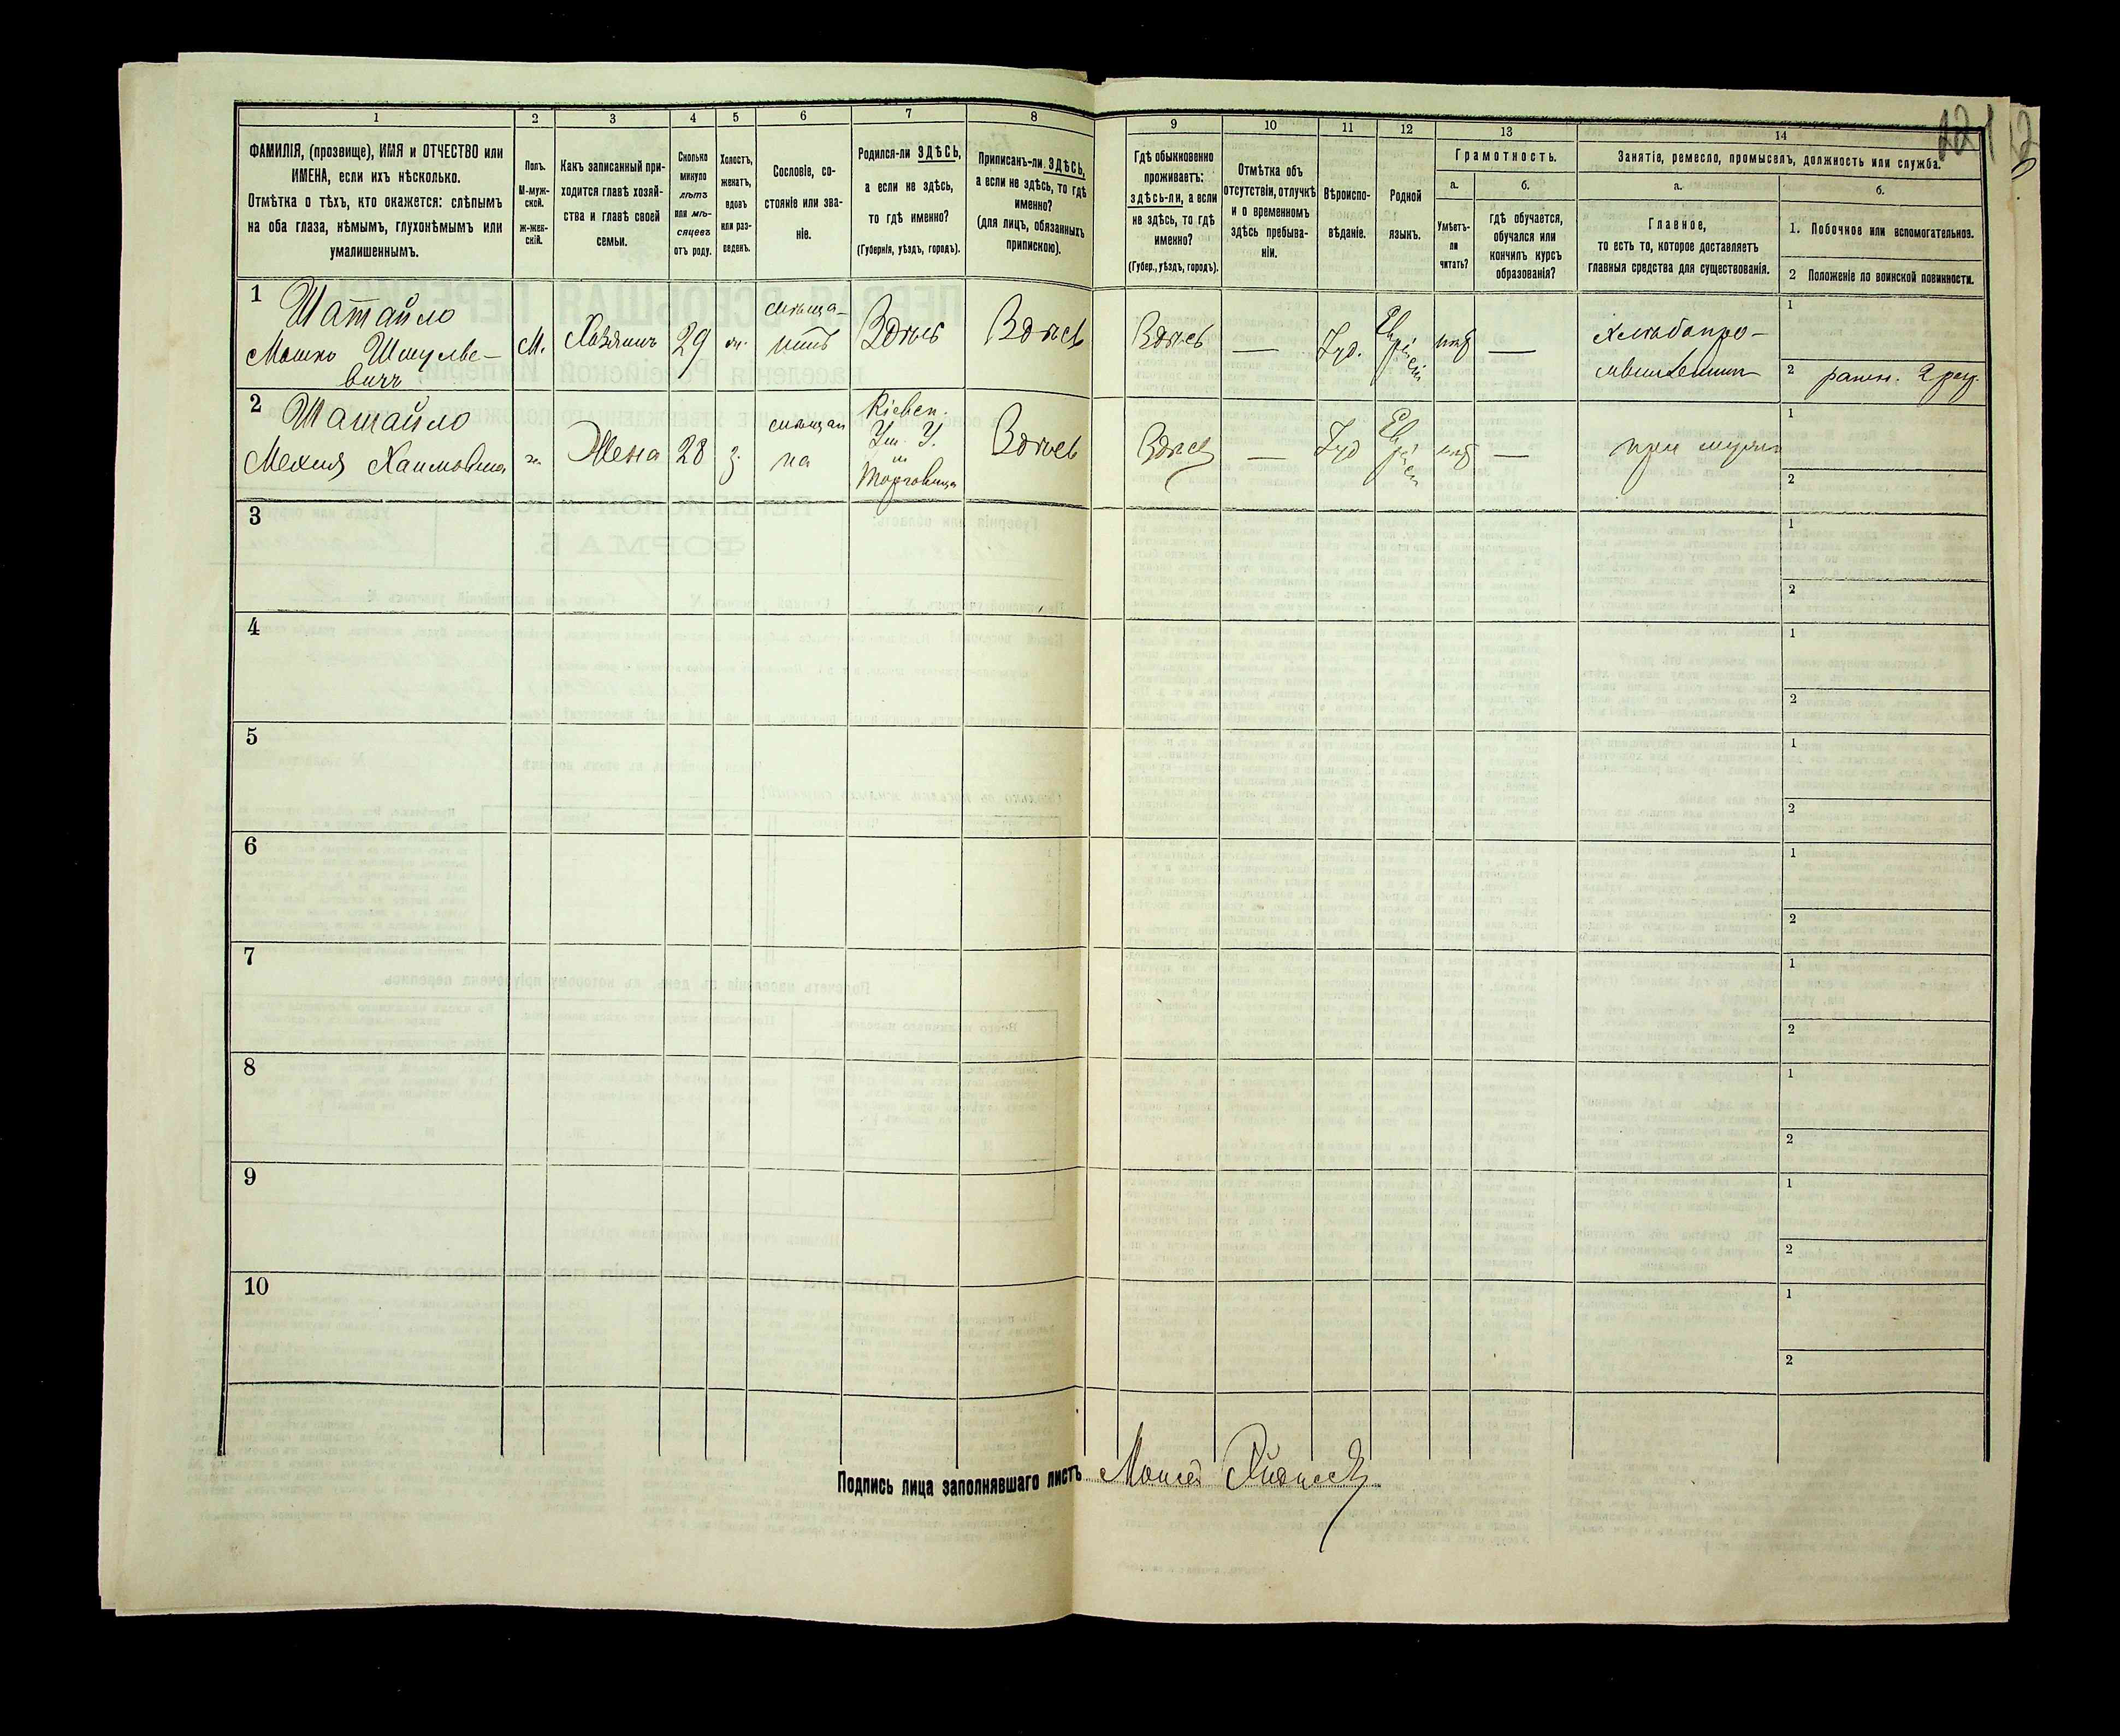 1 2 3 4 5 6 7 8 9 10 11 12 13 14
ФАМИЛІЯ, (прозвище), ИМЯ и ОТЧЕСТВО или
ИМЕНА, если ихъ нѣсколько.
Отмѣтка о тѣхъ, кто окажется: слѣпымъ
на оба глаза, нѣмымъ, глухонѣмымъ или
умалишеннымъ.
Полъ.
М-муж-
ской.
Ж-жен-
скій.
Какъ записанный при-
ходится главѣ хозяй-
ства и главѣ своей
семьи.
Сколько
минуло
лѣтъ
или мѣ-
сяцевъ
отъ роду.
Холостъ,
женатъ,
вдовъ
или раз-
веденъ.
Сословіе, со-
стояніе или зва-
ніе.
Родился-ли ЗДѢСЬ,
а если не здѣсь,
то гдѣ именно?
(Губернія, уѣздъ, городъ).
Приписанъ-ли ЗДѢСЬ,
а если не здѣсь, то гдѣ
именно?
(для лицъ, обязанныхъ
припискою).
Гдѣ обыкновенно
проживаетъ:
здѣсь-ли, а если
не здѣсь, то гдѣ
именно?
(Губер., уѣздъ, городъ).
Отмѣтка объ
отсутствіи, отлучкѣ
и о временномъ
здѣсь пребыва-
ніи.
Вѣроиспо-
вѣданіе.
Родной
языкъ.
Грамотность.
а.
Умѣетъ-
ли
читать?
б.
гдѣ обучается,
обучался или
кончилъ курсъ
образованія?
Занятіе, ремесло, промыселъ, должность или служба.
а.
Главное,
то есть то, которое доставляетъ
главныя средства для существованія.
б.
1. Побочное или вспомогательное.
2 Положеніе по воинской повинности.
121
1 Шатайло
Мошко Шмулье-
вичъ
М. Хозяинъ 29 мѣща-
нинъ Здѣсь Здѣсь Здѣсь — Іуд. нѣтъ —
1
2
2 Шатайло
Жена 28 з. Здѣсь Здѣсь — Іуд нѣтъ — при мужѣ
Кіевск.
Ум. У.
м
Торговица
1
2
3
1
2
4
1
2
5
1
2
6
1
2
7
1
2
8
1
2
9
1
2
10
1
2
Подпись лица заполнявшаго листъ